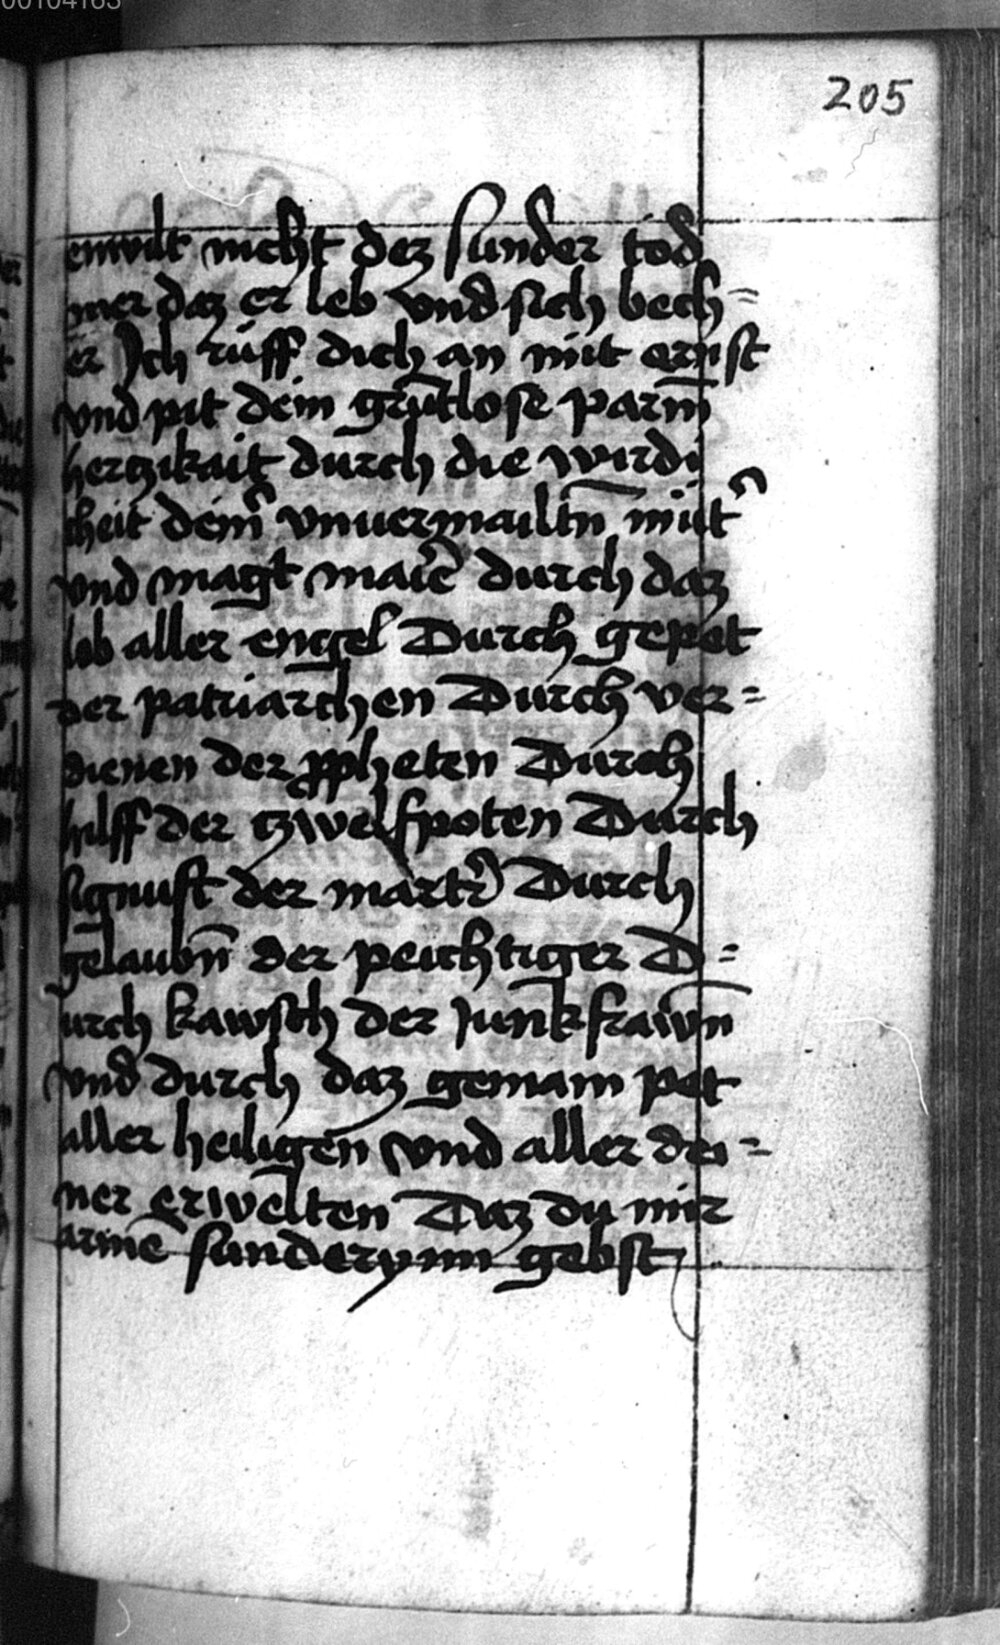 00104163
205
enwilt nicht dez sunder tod
mer daz er leb vnd sich bech=
er Ich rüff dich an mit ernst
vnd pit dein grūtlose parm̄
hertzikait durch die wirdi
cheit deinˀ vnuermailtn̄ mütˀ
vnd magt marie durch daz
lob aller engel Durch gepet
der patriarchen Durch ver=
dienen der ꝓpheten Durch
hilff der tzwelfpoten Durch
signust der martrˀ Durch
gelaubn̄ der peichtiger D=
urch kawsch der Junkfrawn̄
vnd durch daz gemain pet
aller heiligen vnd aller dei=
ner erwelten Daz du mir
armē sunderynn gebst